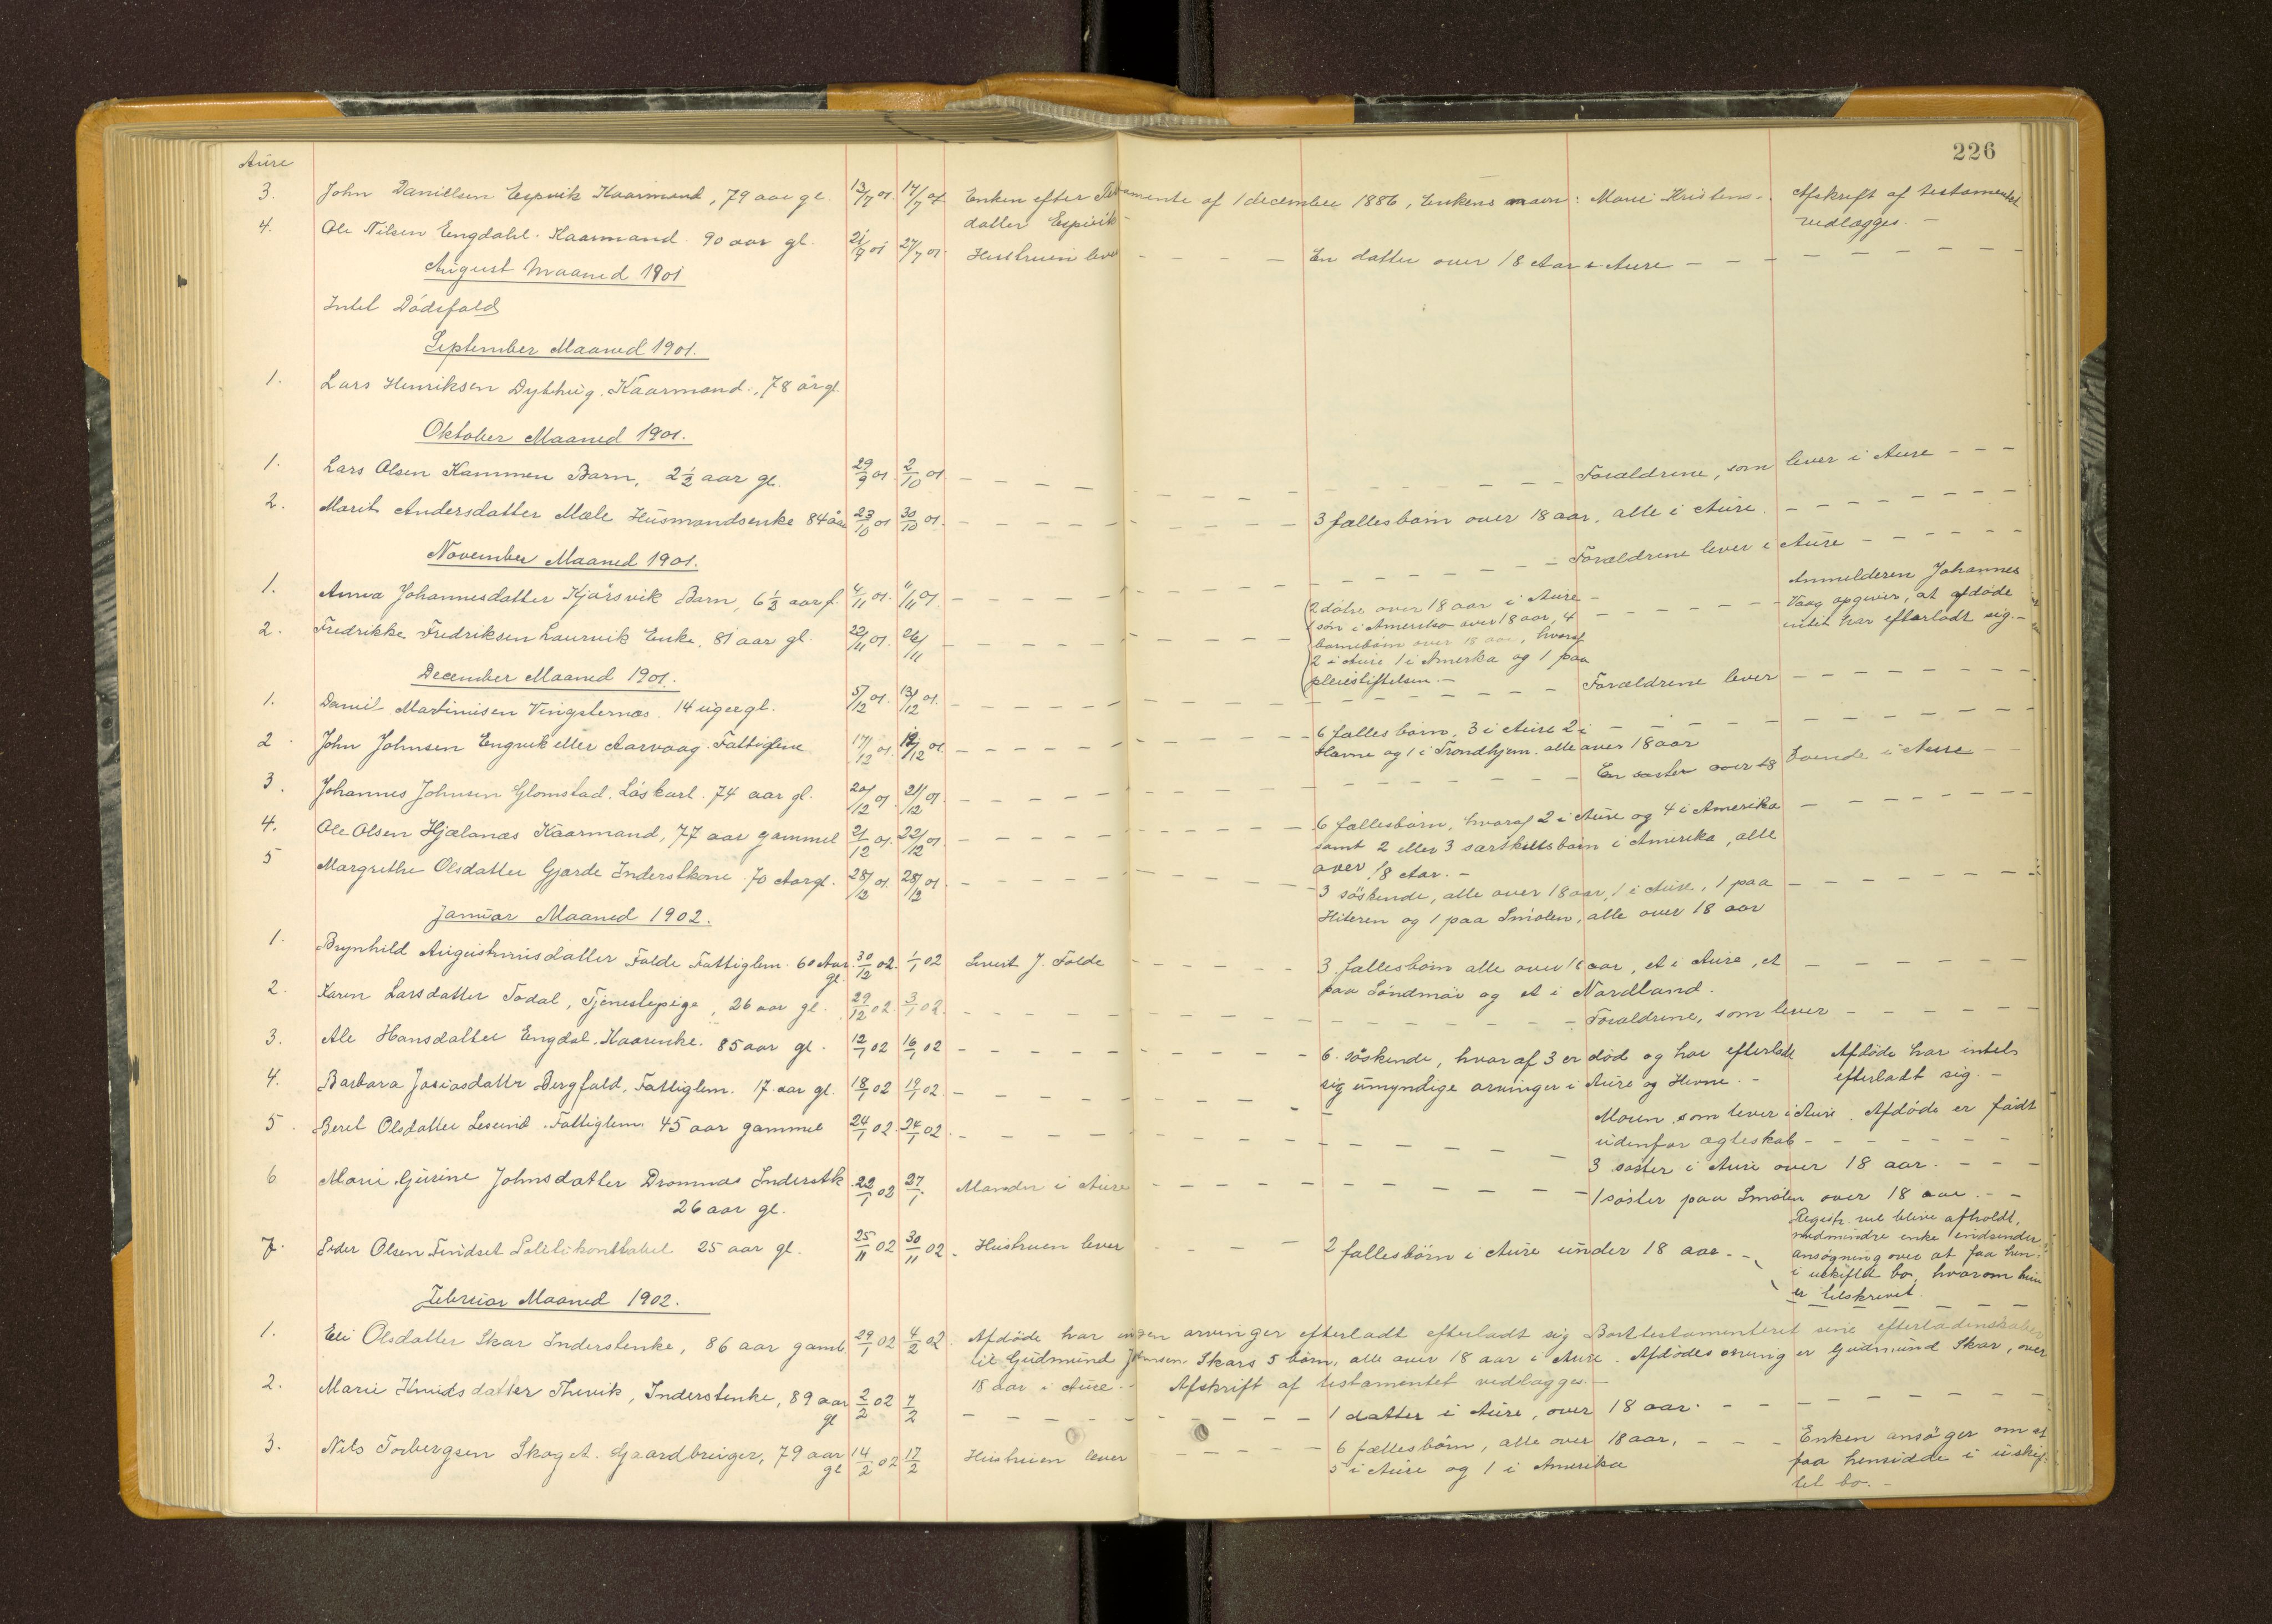 226
Aure
3. John Daniellsen Espvik Kaarmand, 79 aar gl. 13/7 01. 17/7 01 Enken efter Testamente af 1 december 1886, Enkens navn: Marie Kristens- Afskrift af testamentet
datter Espvik - vedlægges. -
4. Ole Nilsen Engdahl. Kaarmand. 90 aar gl. 21/7 01 27/7 01. Hustruen lever - - - - En datter over 18 Aar i Aure - - - - - - - -
August Maaned 1901
Intet Dödsfald
September Maaned 1901.
1. Lars Henriksen Dythüg. Kaarmand., 78 år gl.
Oktober Maaned 1901.
1. Lars Olsen Kammen Barn, 2 1/2 aar gl. 29/9 01. 2/10 01 - - - - Forældrene, som lever i Aure - - -
2. Marit Andersdatter Mæle Husmandsenke 84 år 23/10 01 30/10 01. - - - - 3 fællesbørn over 18 aar, alle i Aure. - - - - - -
November Maaned 1901.
1. Anna Johannesdatter Kjårsvik Barn, 6 1/2 aar g. 4/11 01. 11/11 01. - - - - Forældrene lever i Aure - - - - - -
2. Fredrikke Fredriksen Laurvik Enke, 81 aar gl. 22/11 01. 26/11 - - - - 2 døtre over 18 aar i Aure -
1 søn i Amerika over 18 aar, 4
børnebørn over 18 aar, hvoraf
2 i Aure 1 i Amerika og 1 paa
pleiestiftelsen. -
Anmelderen Johannes
Vaag opgiver, at afdøde
intet har efterladt sig. -
December Maaned 1901.
1. Daniel Martinisen Vingsternæs. 14 uger gl. 5/12 01. 13/12 01. - - - - Forældrene lever - - - - - -
2. John Johnsen Engvik eller Aarvaag. Fattiglem 17/12 01. 19/12 01. - - - - 6 fælles børn, 3 i Aure 2 i - - - -
Hevne og 1 i Trondhjem. alle over 18 aar
3. Johannes Johnsen Glomstad. Løskarl. 74 aar gl. 20/12 01 21/12 01. - - - - En søster over 18 boende i Aure - -
4. Ole Olsen Hjælanæs Kaarmand, 77 aar gammel 21/12 01. 22/12 01. - - - - 6 fællesbørn, hvoraf 2 i Aure og 4 i Amerika - - - -
samt 2 eller 3 særskiltsbørn i Amerika, alle
over 18 Aar. -
5 Margrethe Olsdatter Gjærde Inderstkone 70 Aar gl. 28/12 01. 28/12 01 - - - - 3 söskende, alle over 18 aar, 1 i Aure, 1 paa - - - -
Hiteren og 1 paa Smølen, alle over 18 aar
Januar Maaned 1902.
1. Brynhild Augustinusdatter Folde Fattiglem. 60 Aar gl. 30/12 02. 1/1 02 Sivert J. Folde - - - - 3 fællesbørn alle over 18 aar, et i Aure, et - - - -
paa Söndmör og et i Nordland.
2. Karen Larsdatter Todal, Tjenestepige, 26 aar gl. 29/12 02. 3/1 02. - - - - Forældrene, som lever - - - -
3. Ale Hansdatter Engdal. Kaarenke. 85 aar gl. 12/1 02 16/1 02 - - - - 6. söskende, hvoraf 3 er död og har efterladt Afdöde har intet
sig umyndige arvinger i Aure og Hevne. - efterladt sig. -
4. Barbara Josiasdattr Bergfald, Fattiglem. 17 aar gl. 18/1 02 19/1 02. - - - - Moren som lever i Aure. Afdöde er födt
udenfor ægteskab - - - - - -
5. Beret Olsdatter Leseind. Fattiglem. 45 aar gammel 24/1 02. 24/1 02. - - - - 3 søster i Aure over 18 aar. - - -
6 Marie Gurine Johnsdatter Dromnæs Inderstk 22/1 02 27/1. Manden i Aure - - - - 1 søster paa Smølen over 18 aar. - -
26 aar gl.
7. Peder Olsen Findset Politikonstabel 25 aar gl. 25/11 02 30/11 02. Hustruen lever - - - 2 fællesbörn i Aure under 18 aar. - -
Registr. vil blive afholdt,
medmindre enke indsender
ansøgning over at faa hen-
i uskiftet bo, hvorom hun
er tilskrevet.
Februar Maaned 1902.
1. Eli Olsdatter Skar Inderstenke, 86 aar gaml. 29/1 02 4/2 02. Afdöde har ingen arvinger efterladt efterladt sig Borttestamenteret sine efterladenskaber
til Gudmund Johnsen Skars 5 børn, alle over 18 aar i Aure. Afdødes arving er Gudmund Skar, over
18 aar i Aure. - Afskrift af testamentet vedlægges. -
2. Marie Knudsdatter Thevik, Inderstenke, 89 aar gl 2/2 02 7/2 - - - - 1 datter i Aure, over 18 aar. - - - -
3. Nils Torbergsen Skoget. Gaardbruger, 79 aar gl 14/2 02 17/2 Hustruen lever - - - - 6 fællesbörn, alle over 18 aar, - - - Enken ansöger om at
5 i Aure og 1 i Amerika faa hensidde i uskif-
tet bo. -